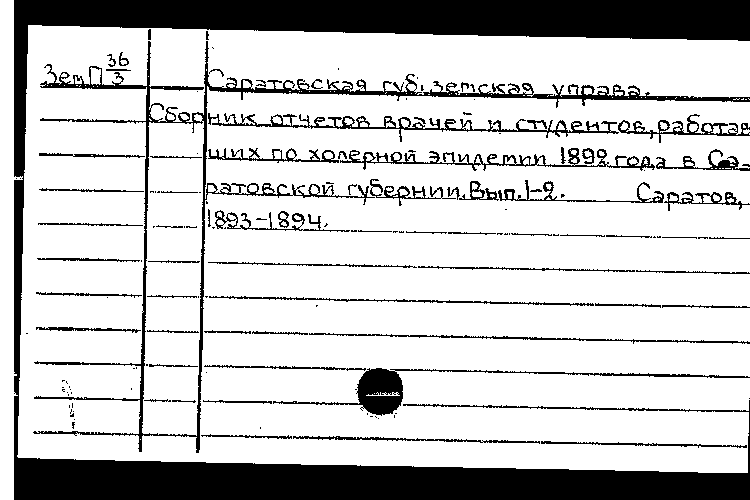 ЗемП 36/3
Саратовская губ. земская управа.
Сборник отчетов врачей и студентов, работав
ших по холерной эпидемии 1892 года в Са-
ратовской губернии. Вып. 1-2. Саратов,
1893-1894.